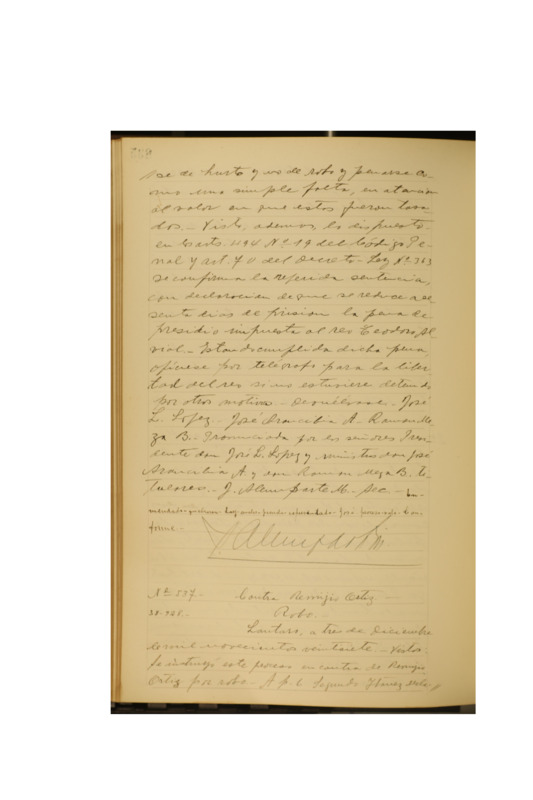 se de hurto y no de robo y penarse co-
mo una simple falta, en atencion
al valor en que estos fueron tasa-
dos.- Visto, ademas, lo dispuesto
en los arts. 494 Nº 19 del Código Pe-
nal y art. 40 del Decreto-Ley Nº 363
se confirma la referida sentencia,
con declaracion de que se reduce a se-
senta dias de prision la pena de
presidio impuesta al reo Teodoro
Estando cumplida dicha pena,
ofíciese por telégrafo para la liber-
tad del reo si no estuviere detenido
por otros motivos.- Devuélvase.- José
L. Lopez.- José Arancibia A.- Ramon Me-
za B.- Pronunciada por los señores Presi-
dente don José L. Lopez y ministros don José
Arancibia A. y don Ramon Meza B. ti-
tulares.- J. Alemparte M. Sec.-
forme.-
Nº 557.- Contra Remijio Ortiz
Robo.
Lautaro, a tres de Diciembre
de mil novecientos veintisiete.- Vistos:
Se instruyó este proceso en contra de Remijio
Ortiz por robo.- A f. 6 Segundo